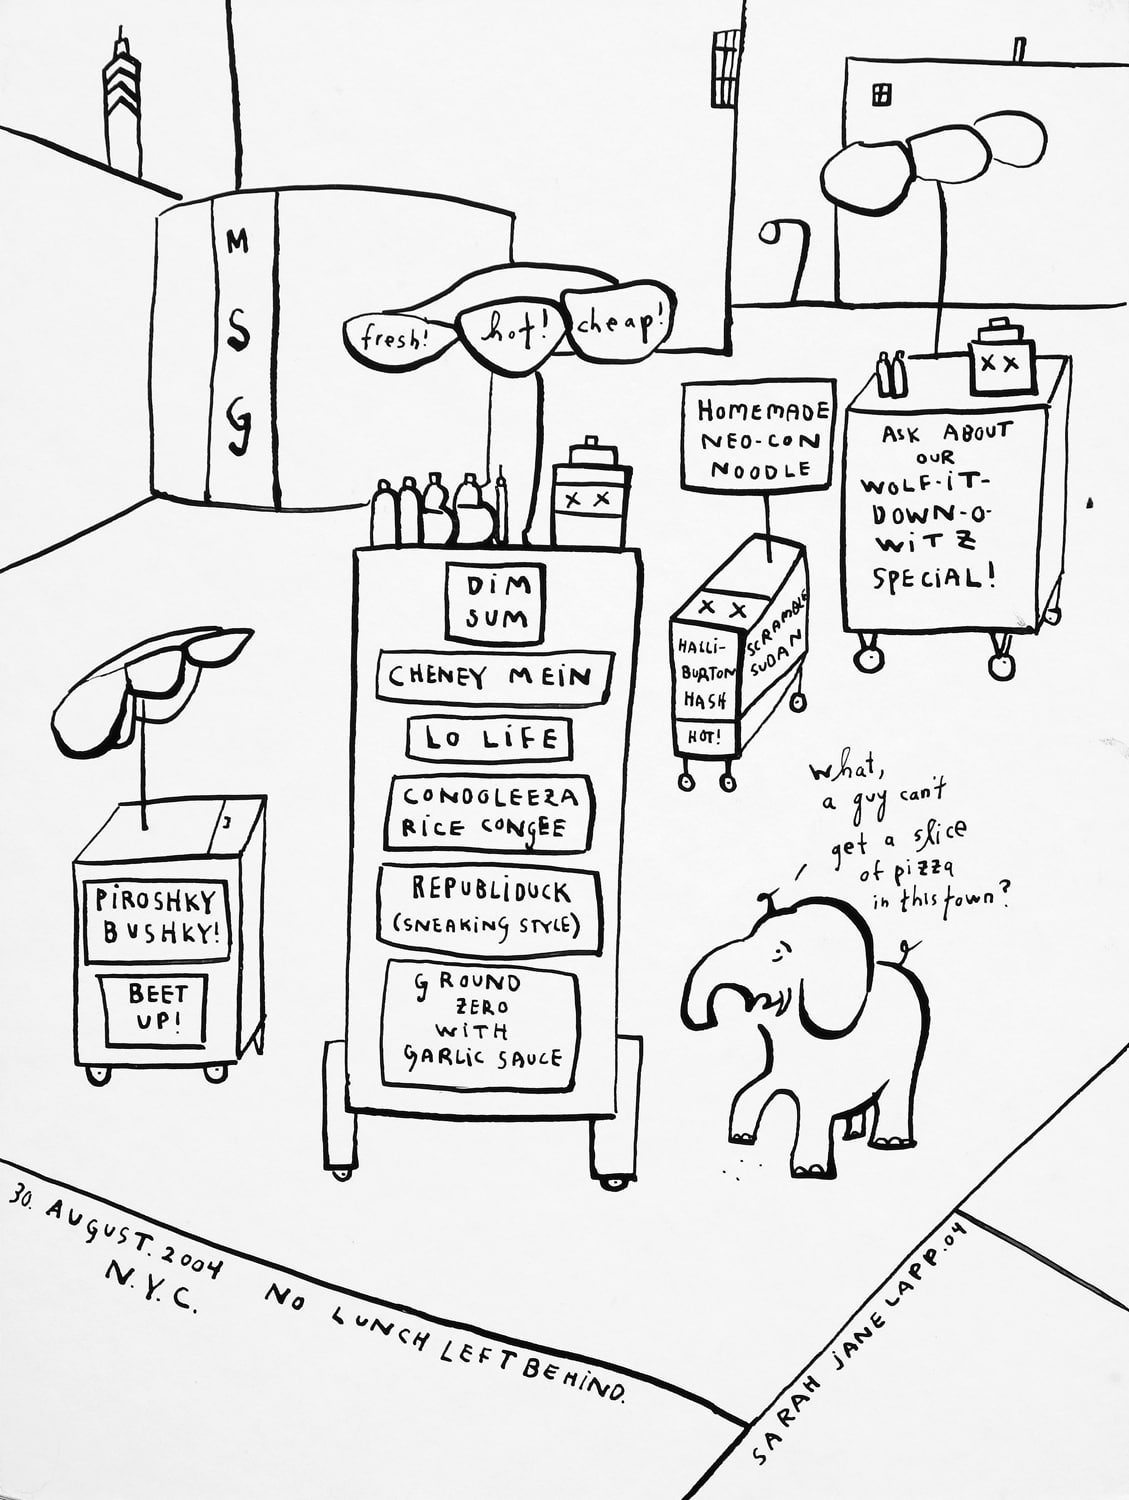 M
S
G
fresh!
hot!
cheap!
HOMEMADE
NEO-CON
NOODLE
ASK ABOUT
OUR
WOLF-iT-
DOWN-O-
WiTZ
SPECiAL!
X X
X X
DiM
SUM
CHENEY MEiN
LO LiFE
CONDOLEEZA
RiCE CONGEE
REPUBLiDUCK
(SNEAKiNG STYLE)
GROUND
ZERO
WiTH
GARLiC SAUCE
X X
HALLi-
BURTON
HASH
HOT!
SCRAMBLE
SUDAN
PiROSHKY
BUSHKY!
BEET
UP!
what,
a guy can't
get a slice
of pizza
in this town?
30. AUGUST. 2004
N.Y.C.
NO LUNCH LEFT BEHiND.
SARAH JANE LAPP. 04